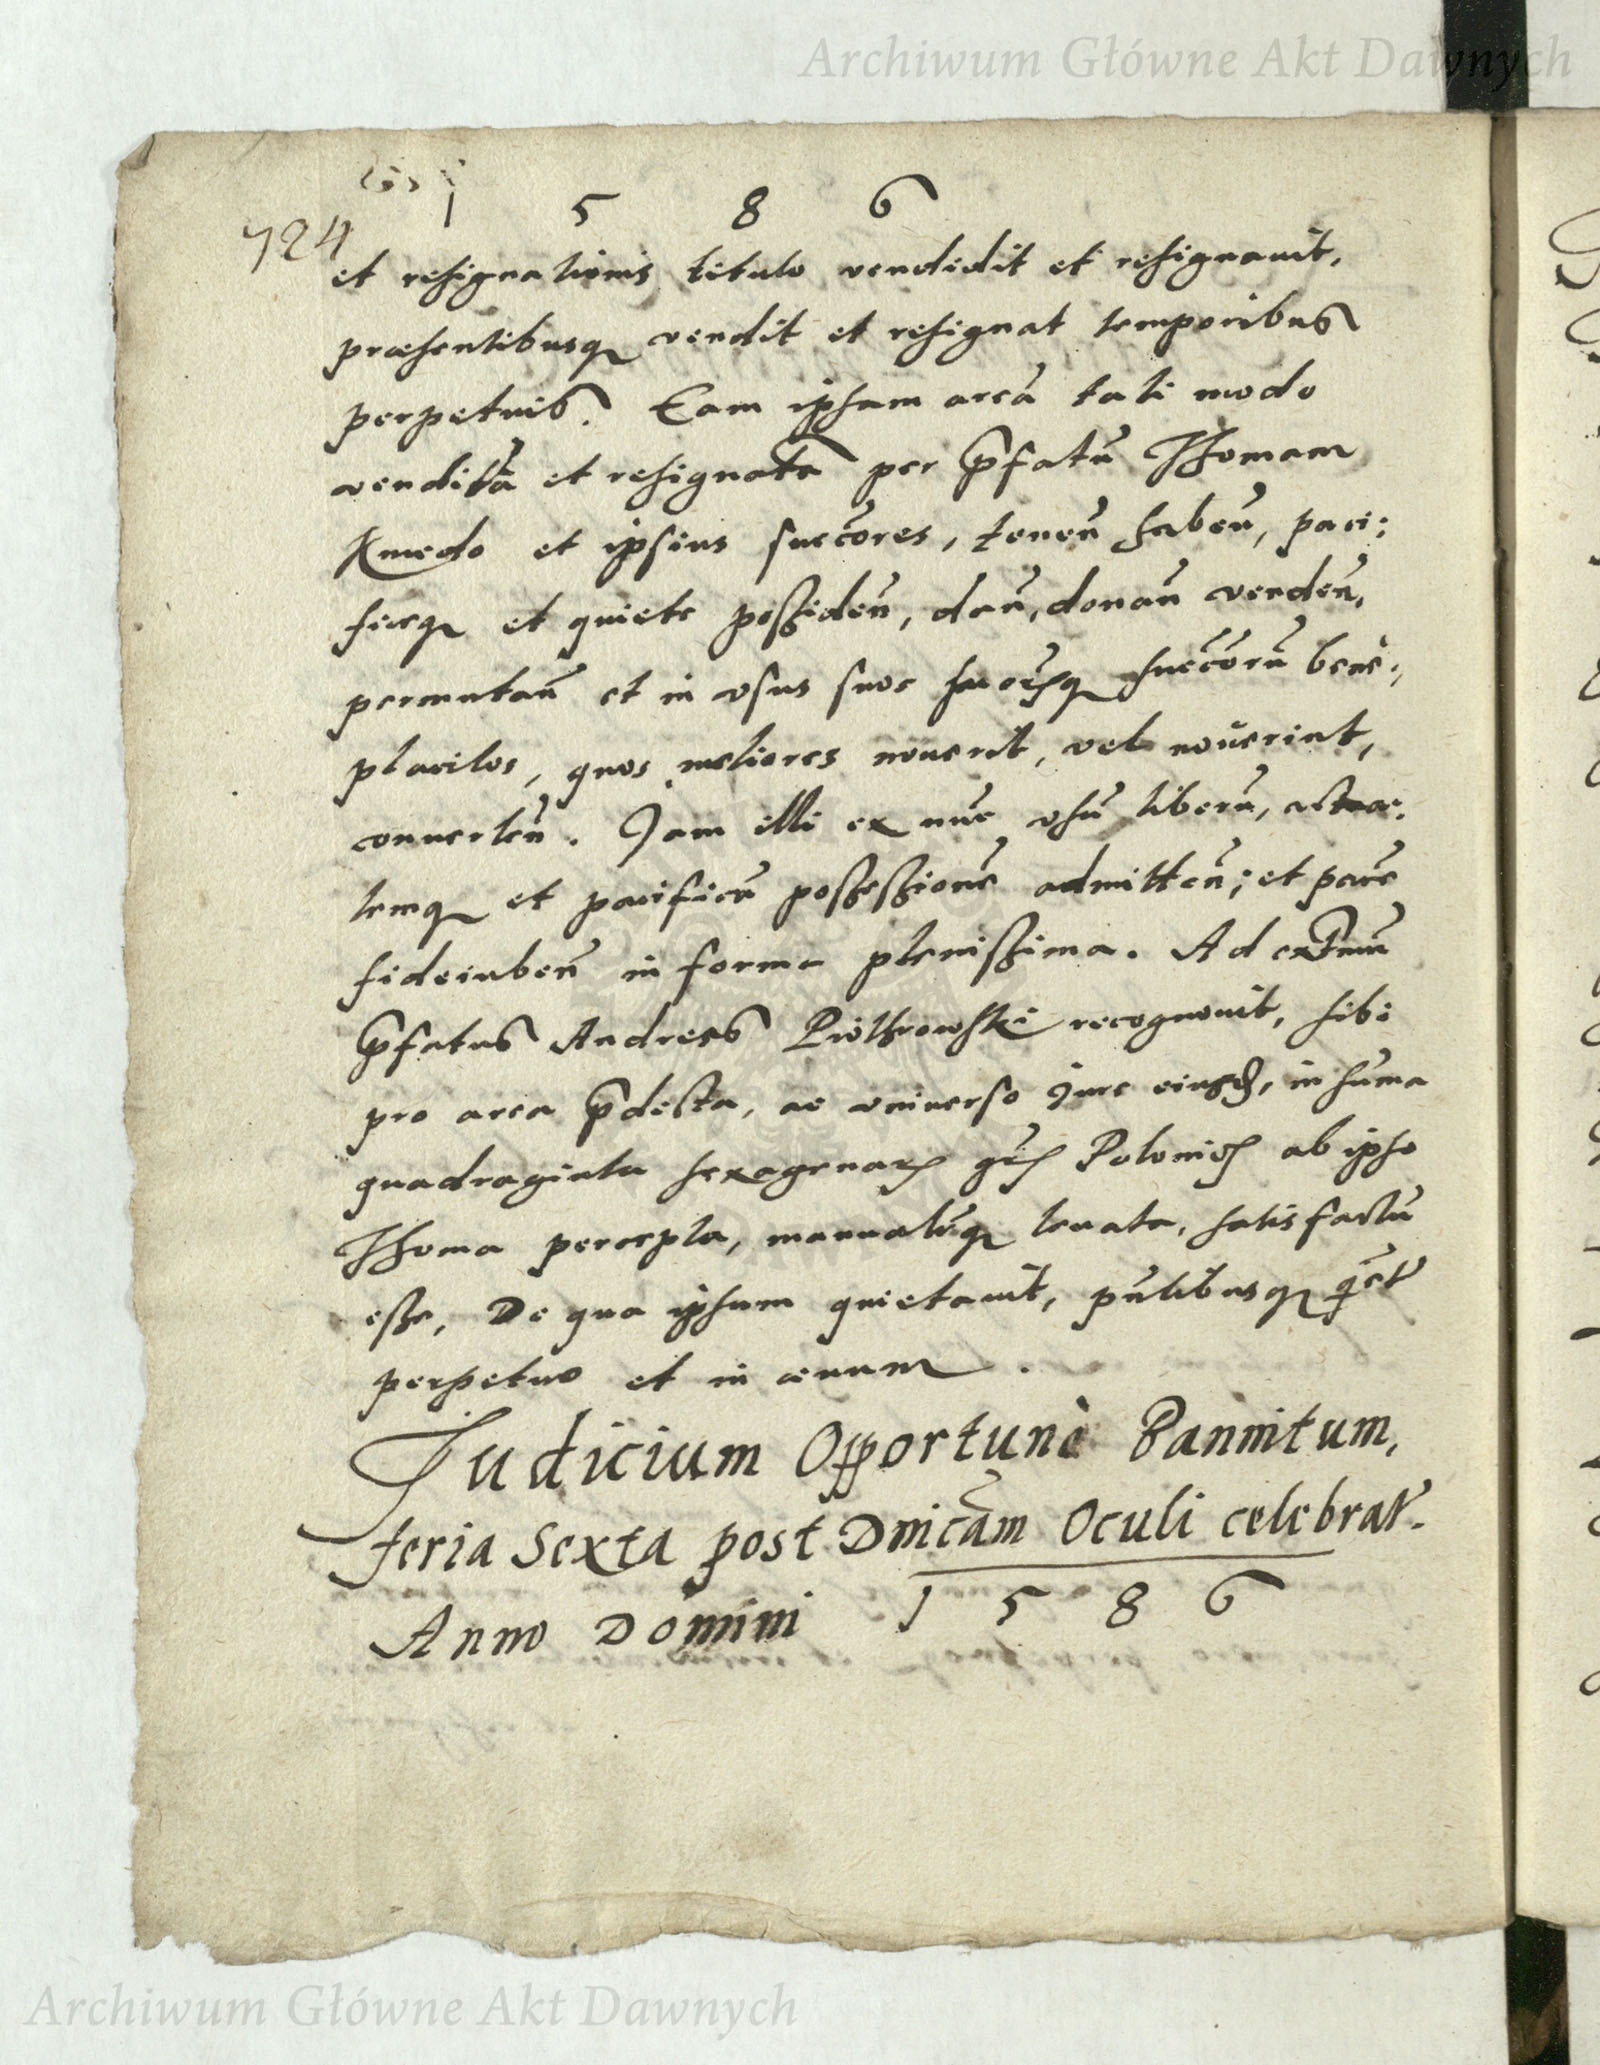 Archiwum Główne Akt Dawnych
1 5 8 6
724
et resignationis titulo vendidit et resignauit,
præsentibusq vendit et resignat temporibus
perpetuis. Eam ipsam areã tali modo
venditã et resignatã per p̃fatũ Thomam
Kmedo et ipsius succ̃ores, teneñ habeñ, paci:
ficeq et quiete possideñ, dañ, donañ vendeñ,
permutañ et in vsus suos suorq̃ succ̃orũ bene:,
placitos, quos meliores nouerit, vel nouerint,
conuerteñ. Jam illi ex nũc vsũ liberũ, actua:
lemq et pacificã possessionẽ admitteñ; et
fideiubeñ in forma plenissima. Ad extmũ
p̃fatus Andreas Piothrowski recognouit, sibi
pro area p̃decta, ac vniuerso jure eiusd, in sũma
quadraginta sexagenar gr Polonic ab ipso
Thoma percepta, manualitq leuata, satisfactũ
esse, De qua ipsum quietauit, pñtibusq q̃etᷣ
perpetuo et in æuum.
Judicium Opportunè Bannitum,
feria Sexta post Dnicãm Oculi celebrat.
Anno Domini 1 5 8 6
Archiwum Główne Akt Dawnych